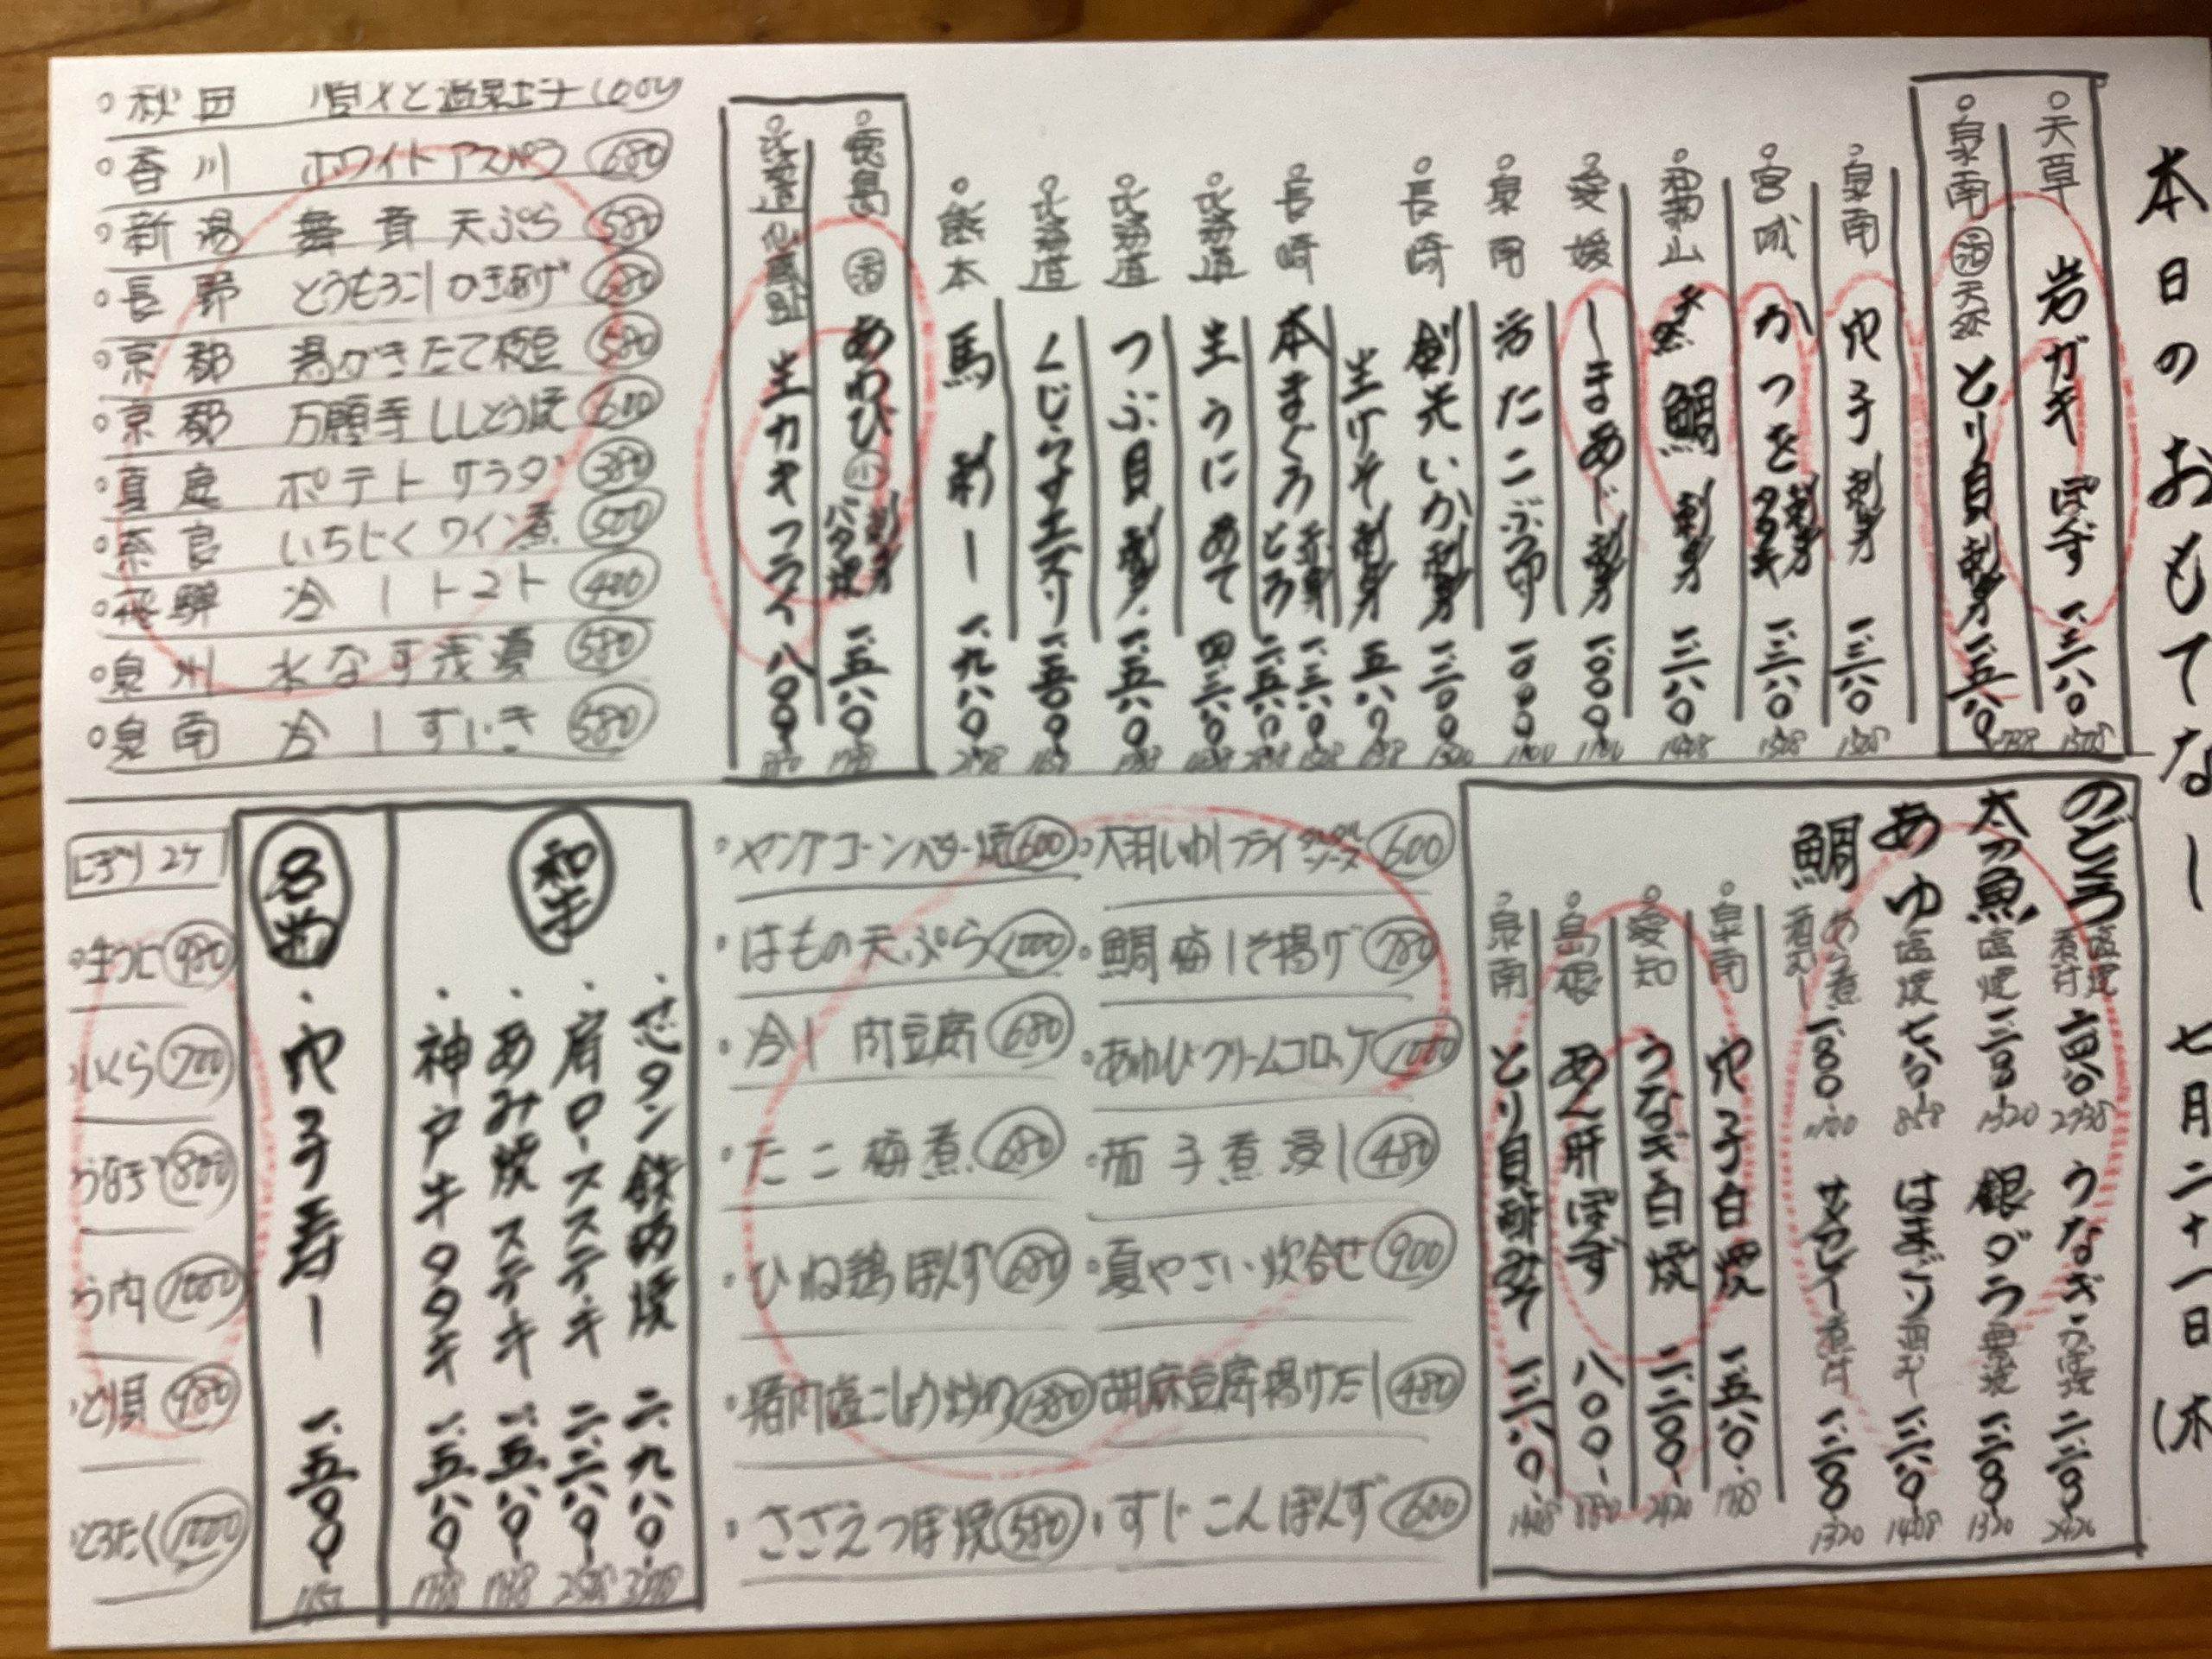 本日のおもてなし 七月二十一日(木
天草 岩ガキ ぽんず 一、三八〇 1518
泉南 活 天然 とり貝 刺身 一、五八〇 1738
泉南 穴子 刺身 一、三八〇 1518
宮城 かつを 刺身 タタキ 一、三八〇 1518
和歌山 天然 鯛 刺身 一、二八〇 1408
愛媛 しまあじ 刺身 一、〇〇〇 1100
泉南 活たこぶつ切り 一、〇〇〇 1100
長崎 剣先いか 刺身 一、二〇〇 1320
生げそ 刺身 五八〇 638
長崎 本まぐろ 赤身 一、三八〇 1518
とろ 二、五八〇 2838
北海道 生うにあて
北海道 つぶ貝 刺身 一、五八〇 1738
北海道 くじらすエズリ 一、五〇〇 1650
熊本 馬刺し 一、九八〇 2178
徳島 活 あわび 刺身 バタ焼 一、五八〇 1738
北海道 仙鳳趾 生カキフライ 八〇〇 880
秋田 1000
香川 ホワイトアスパラ 680
新潟 舞茸天ぷら 580
長野 とうもろこしかきあげ 680
京都 湯がきたて枝豆 580
京都 万願寺ししとう焼 600
夏鹿 ポテトサラダ 380
奈良 いちじくワイン煮 500
飛騨 冷しトマト 480
泉州 水なす浅漬 580
泉南 冷しずいき 580
のどくろ 塩焼 煮付
太刀魚 塩焼 一、二〇〇 1320
あゆ 塩焼 七八〇 858
鯛 あら煮 酒むし 一、〇〇〇 1100
うなぎ かば焼 二、二〇〇 2420
銀ダラ 西京焼 一、二〇〇 1320
はまぐり 酒むし 一、二八〇 1408
サザエ 煮付 一、二〇〇 1320
泉南 穴子白焼 一、五八〇 1738
愛知 うなぎ白焼 二、二〇〇 2420
島根 あん肝ぽんず 八〇〇 880
泉南 とり貝酢みそ 一、二八〇 1408
大羽いわしフライ タルタルソース 600
鯛梅しそ揚げ 780
あわびクリームコロッケ 1000
茄子煮浸し 480
夏やさい炊合せ 900
胡麻豆腐揚げだし 480
すじこんぽんず 600
ヤングコーンバター焼 600
はもの天ぷら 1000
冷し肉豆腐 680
たこ梅煮 680
ひね鶏ぽんず 680
猪肉塩こしょう炒め 1380
さざえつぼ焼 580
和牛
芯タン鉄板焼 二、九八〇 3278
肩ロースステキ
あみ焼ステキ 一、五八〇 1738
神戸牛タタキ 一、五八〇 1738
名物
穴子寿し 一、五〇〇 1650
にぎり 2ケ
生うに 980
いくら 700
うなぎ 800
う肉 1000
とり貝 980
とろたく 1000